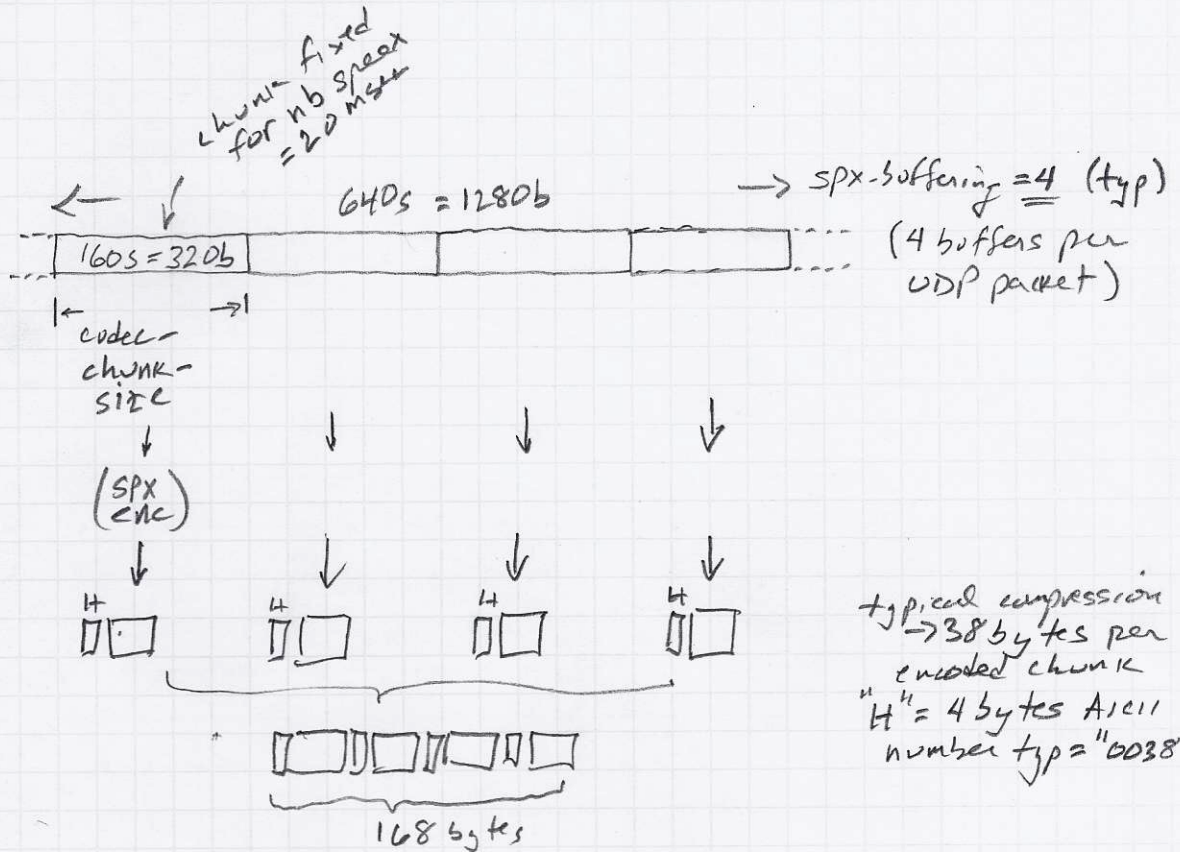 chunk fixed
for nb speex
= 20 msec
640s = 1280b
→ spx-buffering = 4 (typ)
(4 buffers per
UDP packet)
160s = 320b
codec-
chunk-
size
(spx
enc)
H
H
H
H
typical compression
→ 38 bytes per
encoded chunk
"H" = 4 bytes Ascii
number typ = "0038"
168 bytes